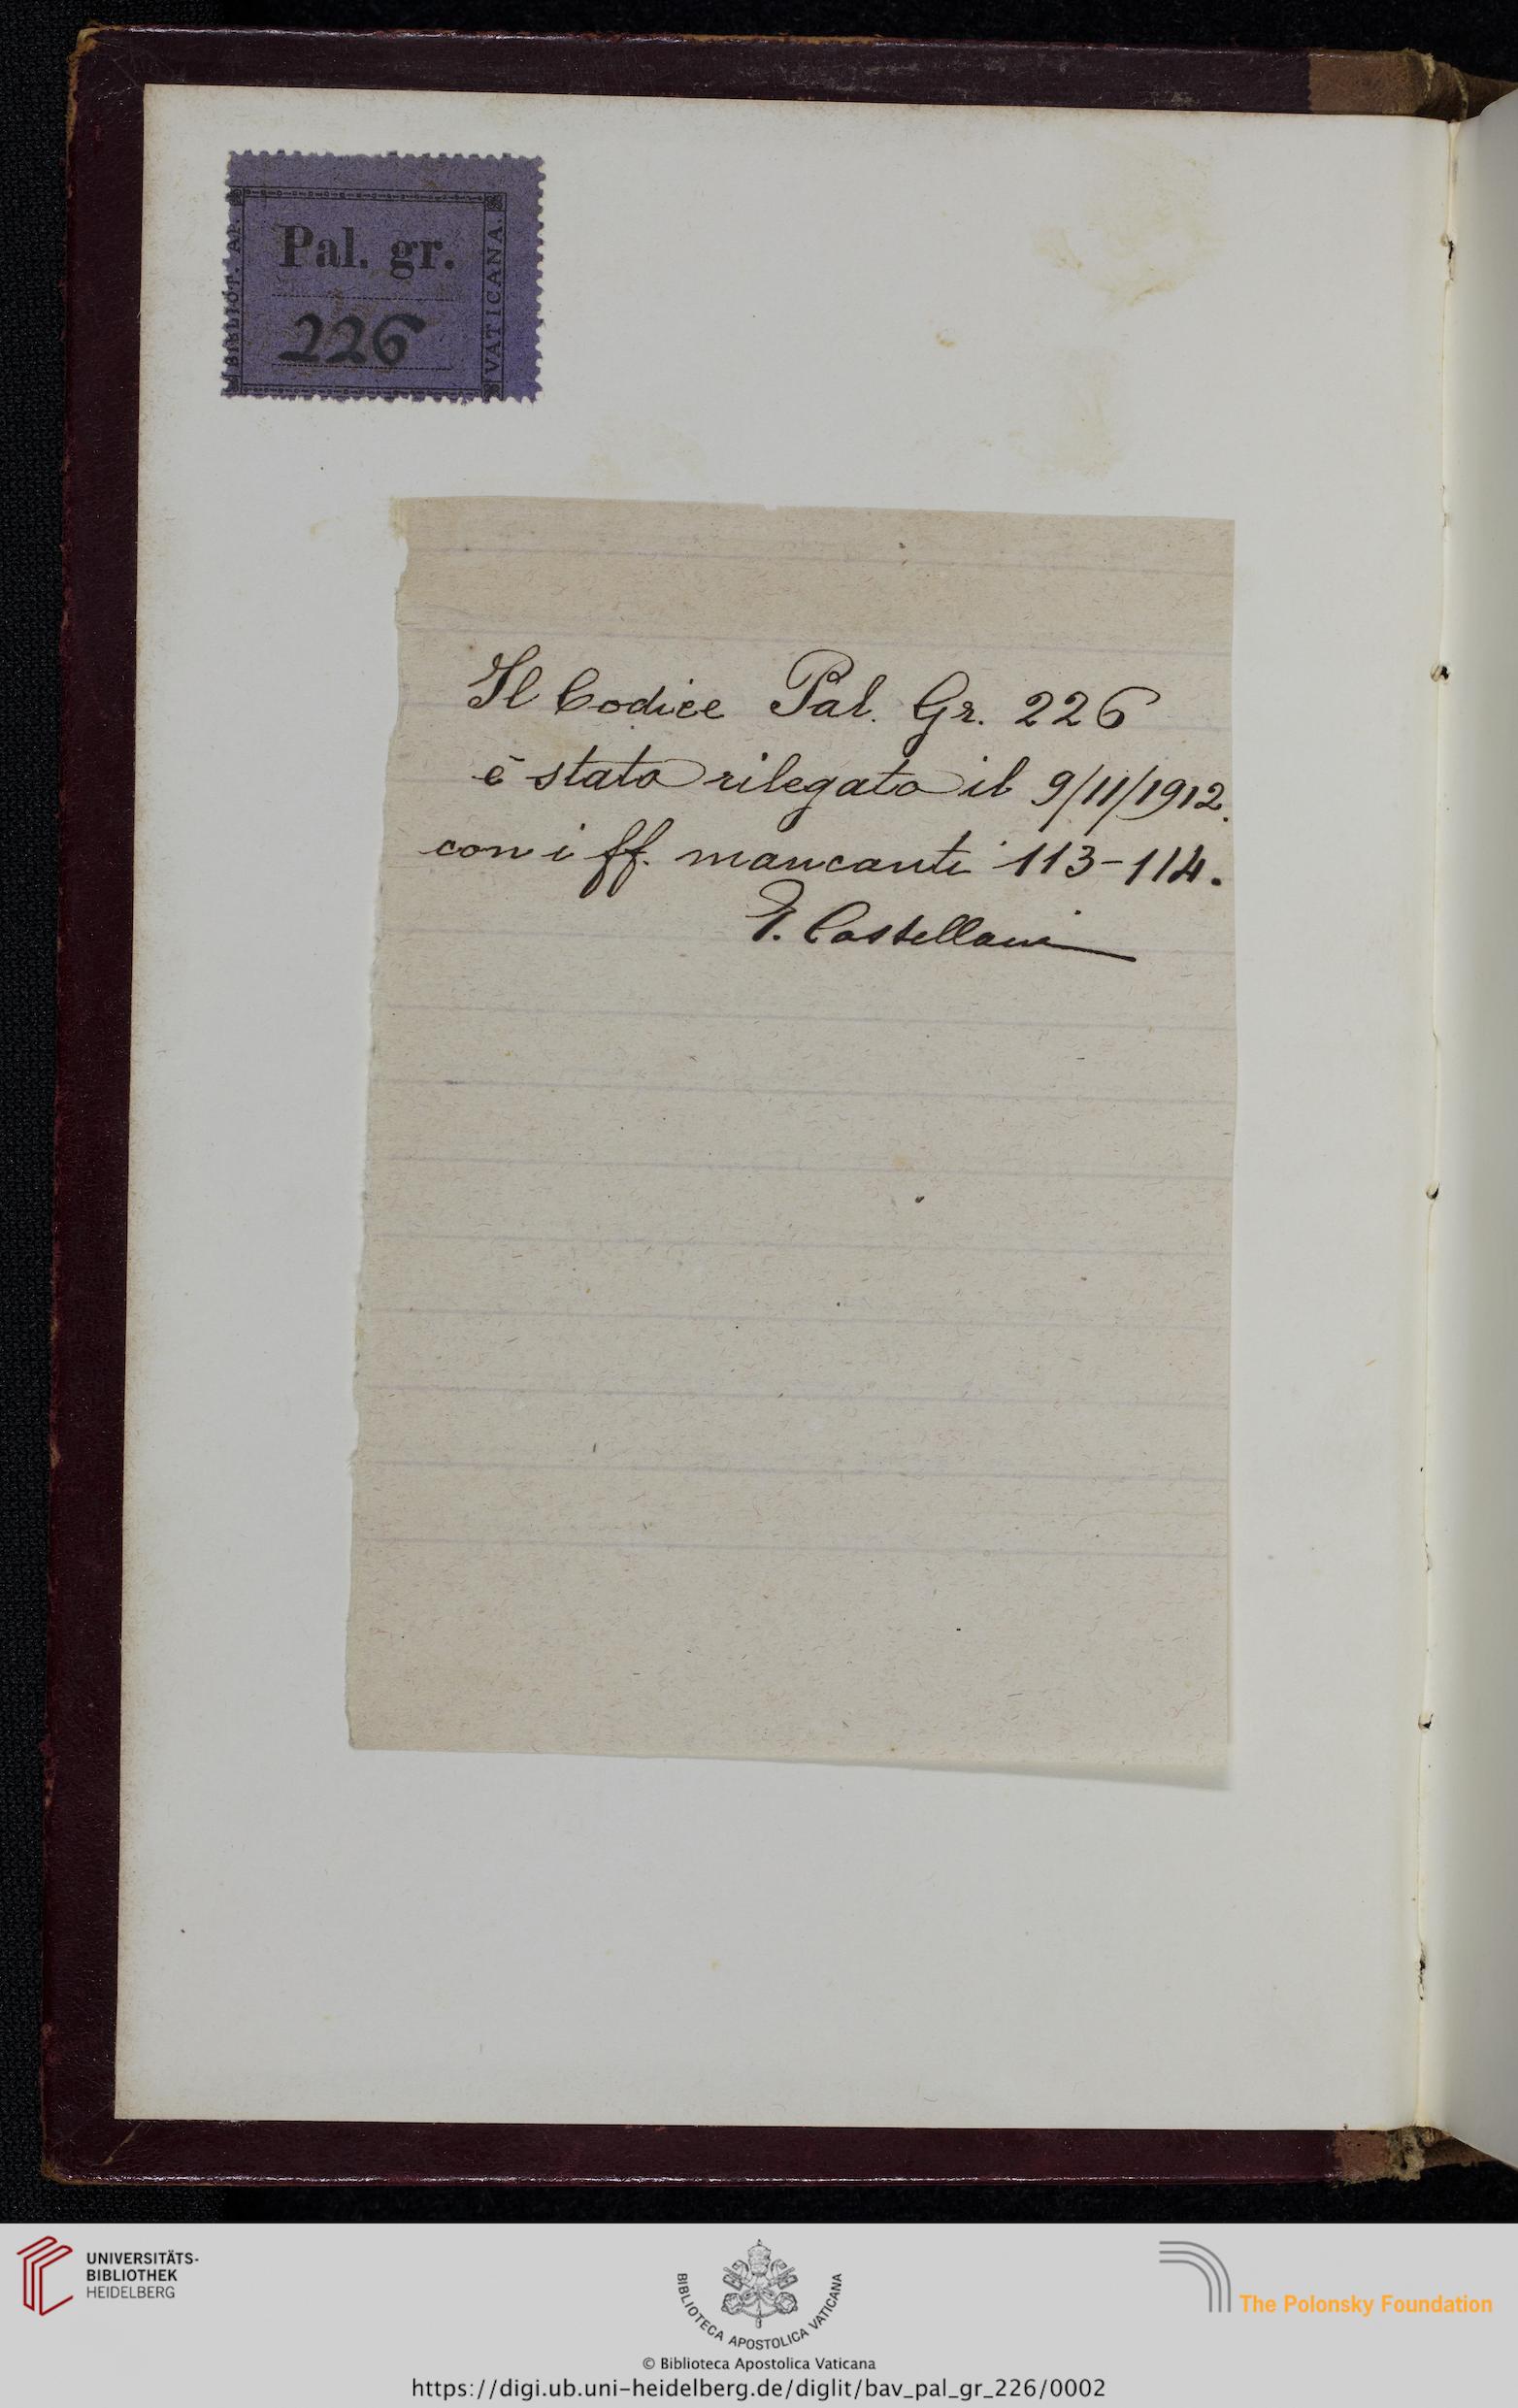 Pal. gr.
226
BIBLIOT. AP.
VATICANA.
Il Codice Pal. Gr. 226
è stato rilegato il 9/11/1912.
con i ff. mancanti 113-114.
Castellani
UNIVERSITÄTS-
BIBLIOTHEK
HEIDELBERG
BIBLIOTECA APOSTOLICA VATICANA
The Polonsky Foundation
© Biblioteca Apostolica Vaticana
https://digi.ub.uni-heidelberg.de/diglit/bav_pal_gr_226/0002